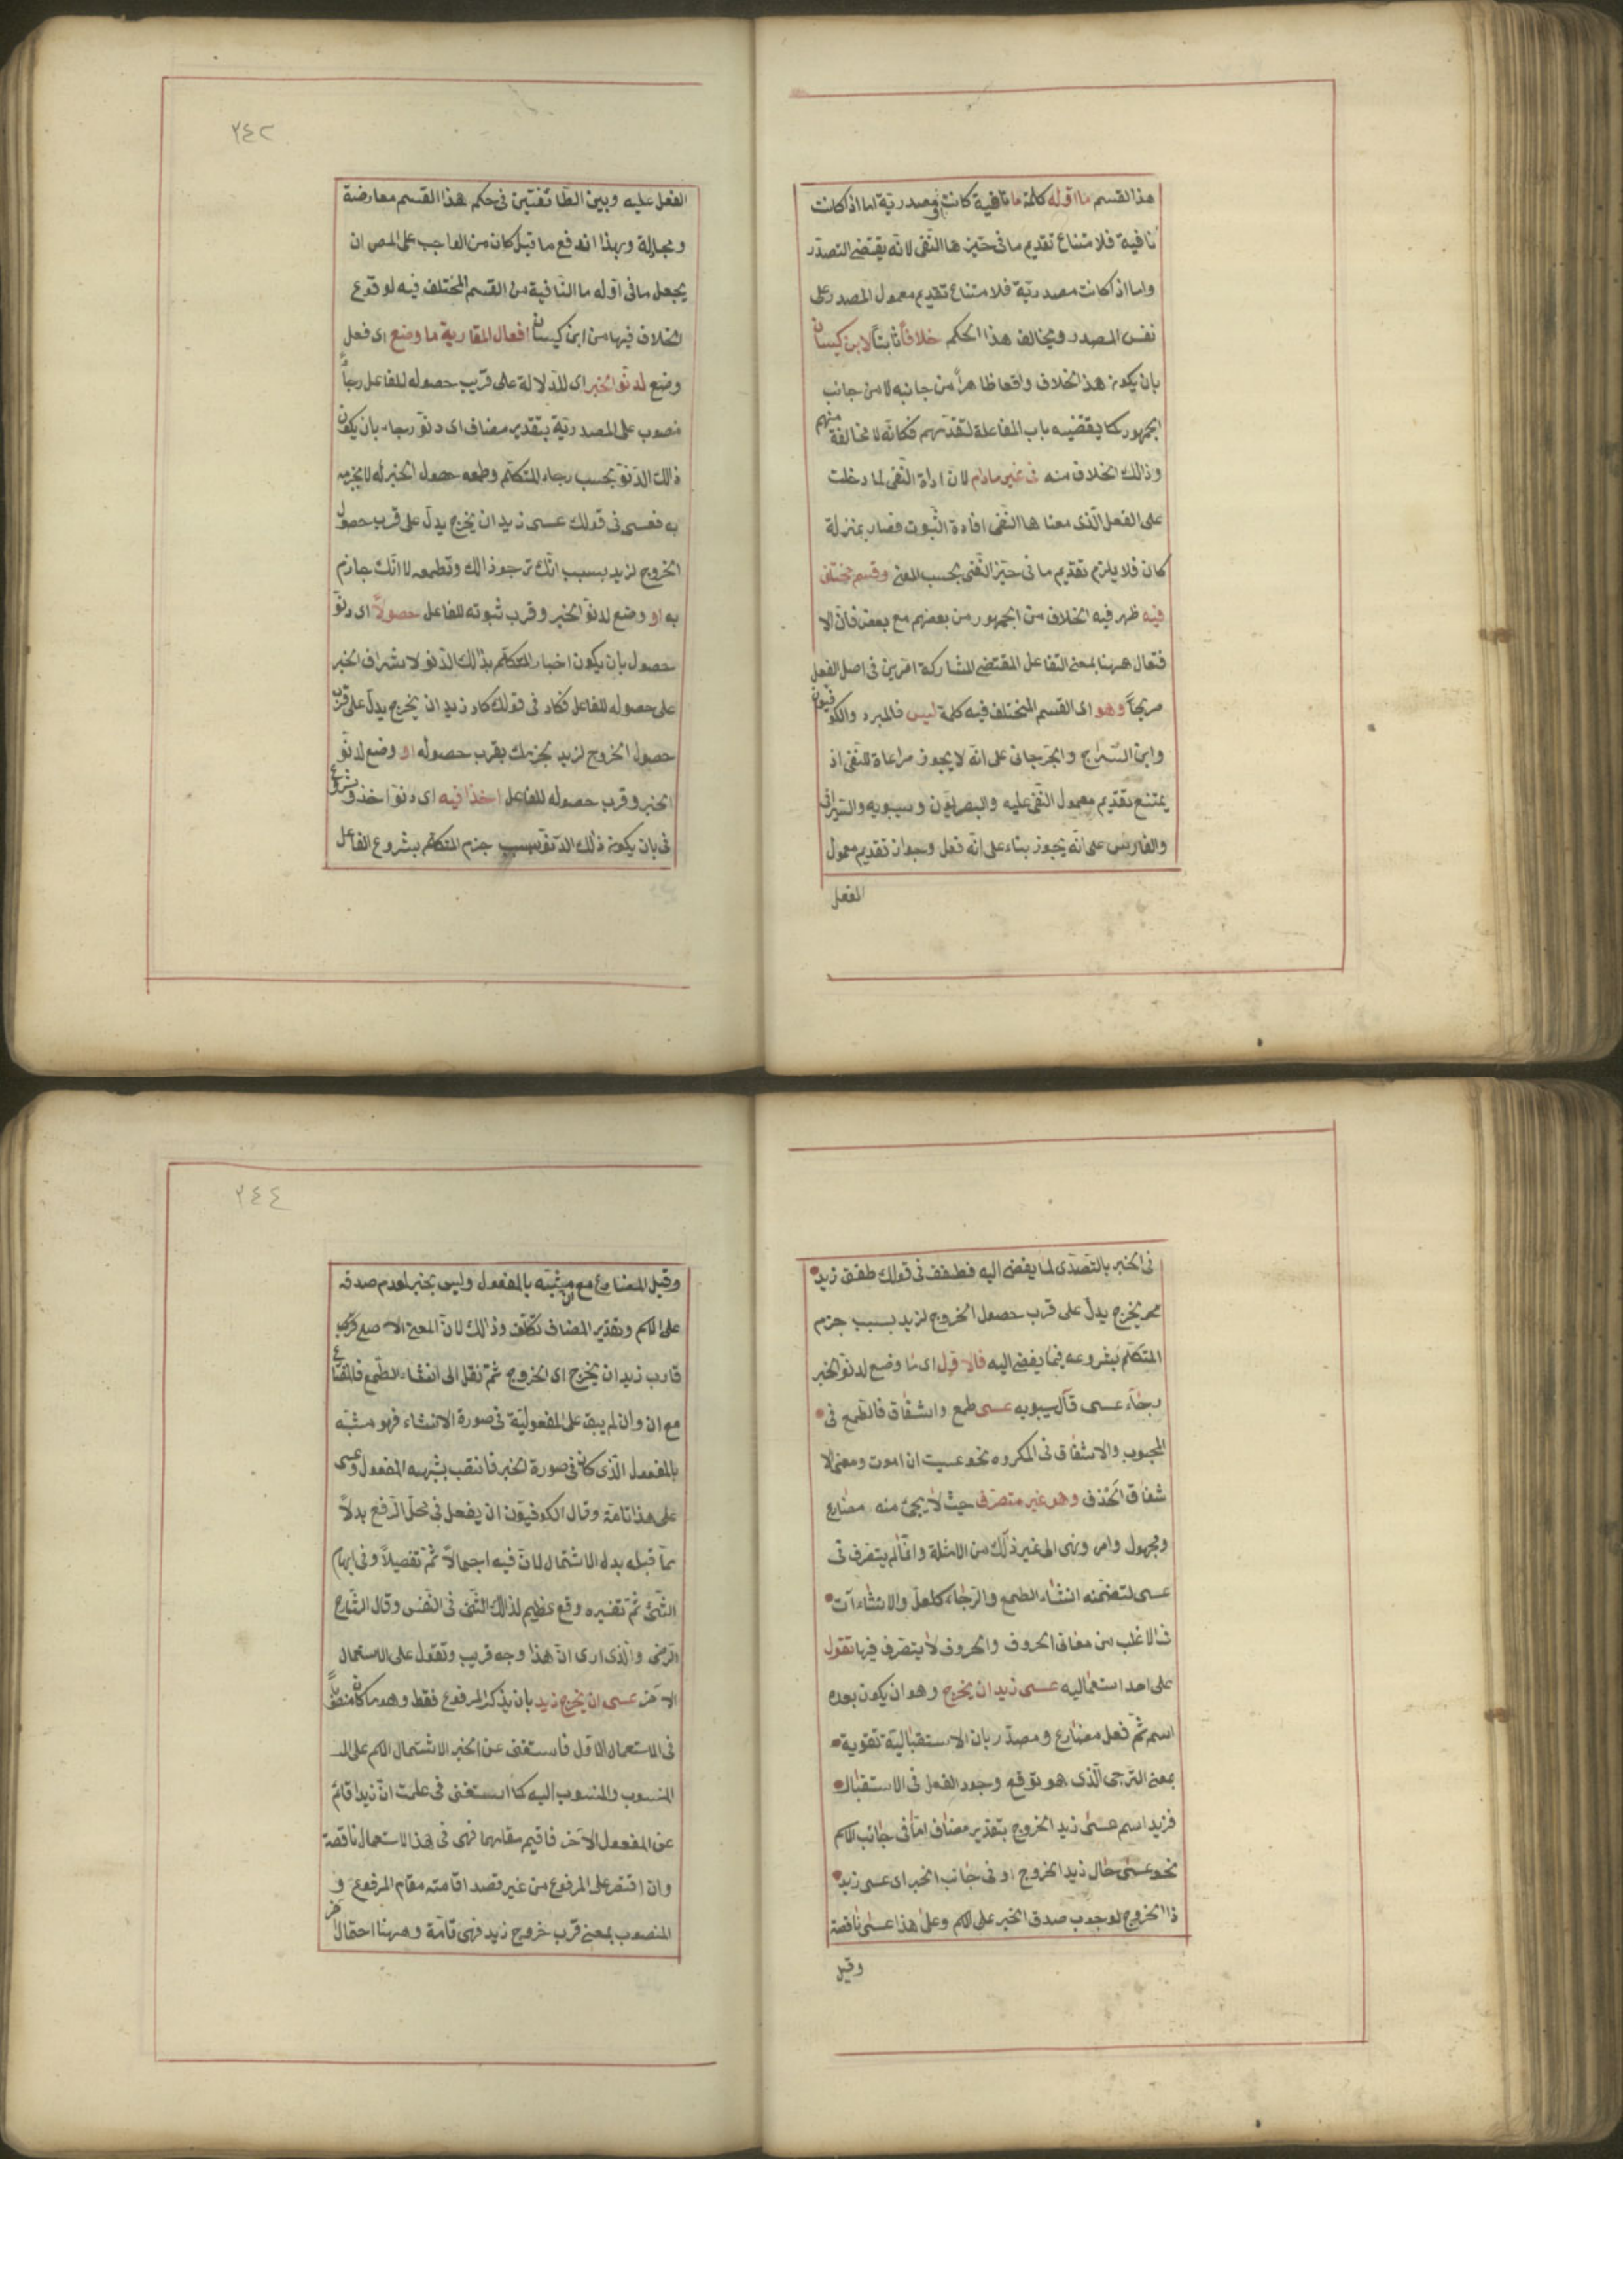 هذا القسم ما اوله كلمة ما نافية كانت او مصدرية اما اذا كانت
نافية فلامتناع تقديم ما فى حيزها النفى لانه يقتضى التصدر
واما اذ كانت مصدرية فلا متناع تقديم معمول المصدر على
نفس المصدر ويخالف هذا الحكم خلافاً ثابتاً لابن كيسان
بان يكون هذا لخلاف واقعا ظاهراً من جانبه لا من جانب
الجمهور كما يقتضيه باب المفاعلة لتقدمهم فكانه لا مخالفة منهم
وذالك الخلاف منه فى غير مادام لان اداة النفى لما دخلت
على الفعل الذى معنا ها النفى افادة الثبوت فصار بمنزلة
كان فلا يلزم تقديم ما فى حيز النفى بحسب المعنى وقسم مختلف
فيه ظهر فيه الخلاف من الجمهور من بعضهم مع بعض فان الا
فتعال ههنا بمعنى التفاعل المقتضى لمشاركة امرين فى اصل الفعل
صريحاً وهو اى القسم المختلف فيه كلمة ليس فالمبرد والكوفيون
وابن السراج والجرجانى على انه لا يجوز مراعاة للنفى اذ
يمتنع تقديم معمول النفى عليه والبصريون وسيبويه والسيرافى
والفارسى على انه يجوز بناء على انه فعل وجواز تقديم معمول
الفعل
٢٤٢
الفعل عليه وبين الطائفتين فى حكم هذا القسم معارضة
ومجادلة وبهذا اندفع ما قيل كان من الواجب على المص ان
يجعل ما فى اوله ما النافية من القسم المختلف فيه لوقوع
الخلاف فيها من ابن كيسان افعال المقاربة ما وضع اى فعل
وضع لدنو الخبر اى للدلالة على قرب حصوله للفاعل رجاً
منصوب على المصدرية بتقدير مضاف اى دنو رجاء بان يكون
ذالك الدنو بحسب رجاء المتكلم وطمعه حصول الخبر له لا بجزمه
به فعسى فى قولك عسى زيد ان يخرج يدل على قرب حصول
الخروج لزيد بسبب انك ترجو ذالك وتطمعه لا انك جازم
به او وضع لدنو الخبر وقرب ثبوته للفاعل حصولاً اى دنو
حصول بان يكون اخبار المتكلم بذالك الدنو لاشراف الخبر
على حصوله للفاعل فكاد فى قولك كاد زيد ان يخرج يدل على قرب
حصول الخروج لزيد لجزمك بقرب حصوله او وضع لدنو
الخبر وقرب حصوله للفاعل اخذا فيه اى دنو اخذ وشروع
فى بان يكون ذالك الدنو بسبب جزم المتكلم بشروع الفاعل
فى الخبر بالتصدى لما يفضى اليه فطفق فى قولك طفق زيد
يخرج يدل على قرب حصول الخروج لزيد بسبب جزم
المتكلم بشروعه فيما يفضى اليه فالاول اى ما وضع لدنو الخبر
رجاء عسى قال سيبويه عسى طمع واشفاق فالطمع فى
المحبوب والاشفاق فى المكروه نحو عسيت ان اموت ومعنى الا
شفاق الخوف وهو غير متصرف حيث لا يجئ منه مضارع
ومجهول وامر ونهى الى غير ذلك من الامثلة وانما لم يتصرف فى
عسى لتضمنه انشاء الطمع والرجاء كلعل والانشاءآت
فى الاغلب من معانى الحروف والحروف لا يتصرف فيها تقول
على احد استعماليه عسى زيد ان يخرج وهو ان يكون بعده
اسم ثم فعل مضارع ومصدر بان الاستقبالية تقوية
بمعنى الترجى الذى هو توقع وجود الفعل فى الاستقبال
فزيد اسم عسى زيد الخروج بتقدير مضاف اما فى جانب الاسم
نحو عسى حال زيد الخروج او فى جانب الخبر اى عسى زيد
ذا الخروج لوجوب صدق الخبر على الاسم وعلى هذا عسى ناقصة
وقيل
٢٤٤
وقيل المضارع مع ان مشبه بالمفعول وليس بخبر لعدم صدقه
على الاسم وتقدير المضاف تكلف وذالك لان المعنى الاصلى
قارب زيد ان يخرج اى الخروج ثم نقل الى انشاء الطمع فالمضارع
مع ان وان لم يبق على المفعولية فى صورة الانشاء فهو مشبه
بالمفعول الذى كان فى صورة الخبر فانتصب بشبهه المفعول وعسى
على هذا تامة وقال الكوفيون ان يفعل فى محل الرفع بدلاً
مما قبله بدل الاشتمال لان فيه اجمالاً ثم تفصيلاً وفى ابهام
الشئ ثم تفسيره وقع عظيم لذالك الشئ فى النفس وقال الشارح
الرضى والذى ارى ان هذا وجه قريب وتقول على الاستعمال
الآخر عسى ان يخرج زيد بان يذكر المرفوع فقط وهو ما كان منصوباً
فى الاستعمال الاول فاستغنى عن الخبر لاشتمال الاسم على الـ
المنسوب والمنسوب اليه كما استغنى فى علمت ان زيدا قائم
عن المفعول الآخر فاقيم مقامهما فهى فى هذا الاستعمال ناقصة
وان اقتصر على المرفوع من غير قصد اقامته مقام المرفوع و
المنصوب بمعنى قرب خروج زيد فهى تامة وههنا احتمال آخر